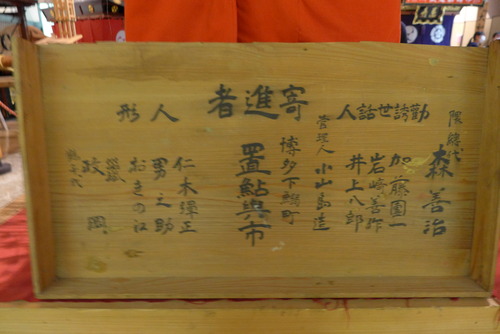 寄進者
勸誘世話人
隈總代
森善治
加藤園一
岩崎善作
井上八郎
管理人
小山島造
博多下鰯町
置鮎與市
人形
仁木彈正
男之助
おきの江
政岡